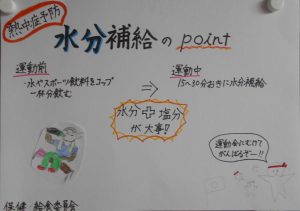 熱中症予防
水分補給のpoint
運動前
・水やスポーツ飲料をコップ
一杯分飲む
⇒
運動中
15〜30分おきに水分補給
水分＋塩分
が大事!!
運動会にむけて
がんばるぞー!!
保健 給食委員会